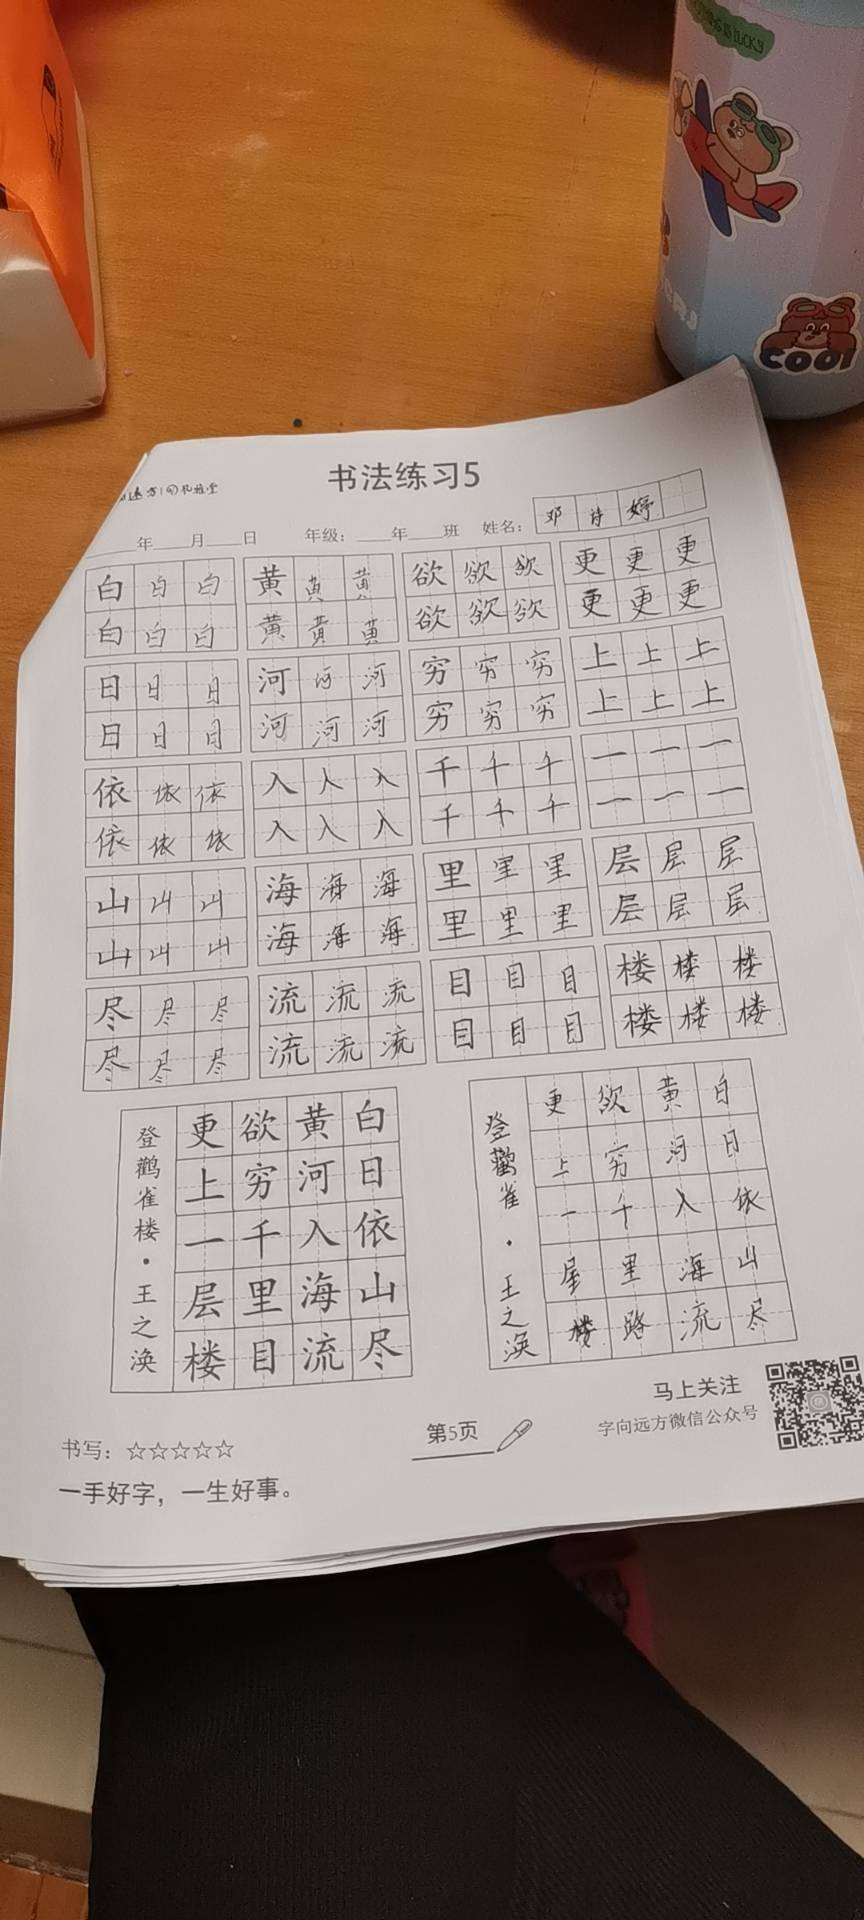 COOl
书法练习5
年 月 日 年级： 年 班 姓名： 邓 诗 婷
白 白 白 黄 黄 黄 欲 欲 欲 更 更 更
白 白 白 黄 黄 黄 欲 欲 欲 更 更 更
日 日 日 河 河 河 穷 穷 穷 上 上 上
日 日 日 河 河 河 穷 穷 穷 上 上 上
依 依 依 入 入 入 千 千 千 一 一 一
依 依 依 入 入 入 千 千 千 一 一 一
山 山 山 海 海 海 里 里 里 层 层 层
山 山 山 海 海 海 里 里 里 层 层 层
尽 尽 尽 流 流 流 目 目 目 楼 楼 楼
尽 尽 尽 流 流 流 目 目 目 楼 楼 楼
白日依山尽
黄河入海流
欲穷千里目
更上一层楼
登鹳雀楼·王之涣
白日依山尽
黄河入海流
欲穷千里路
更上一层楼
登鹳雀·王之涣
马上关注
字向远方微信公众号
第5页
书写：☆☆☆☆☆
一手好字，一生好事。